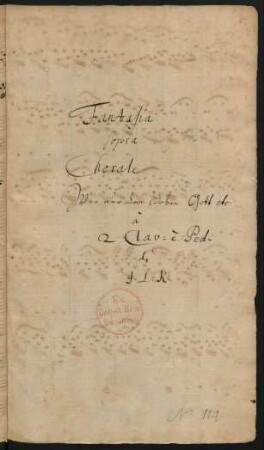 Fantasia
sopra
Chorale
Wer nur den lieben Gott etc
à
2 Clav: è Ped.
di
J. L. K.